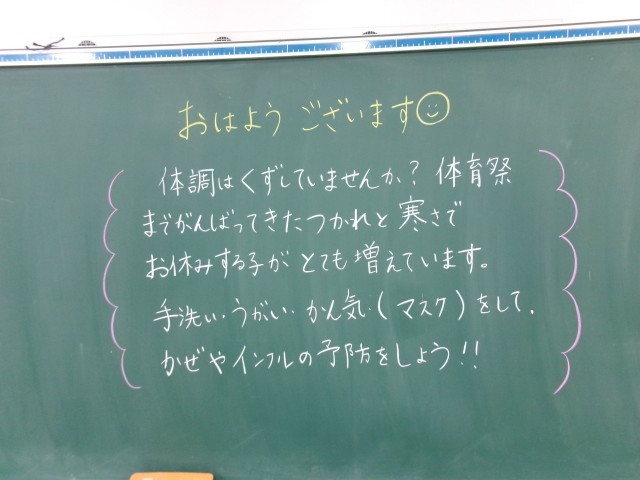 おはようございます
体調はくずしていませんか？体育祭
までがんばってきたつかれと寒さで
お休みする子がとても増えています。
手洗い・うがい・かん気・(マスク)をして、
かぜやインフルの予防をしよう!!